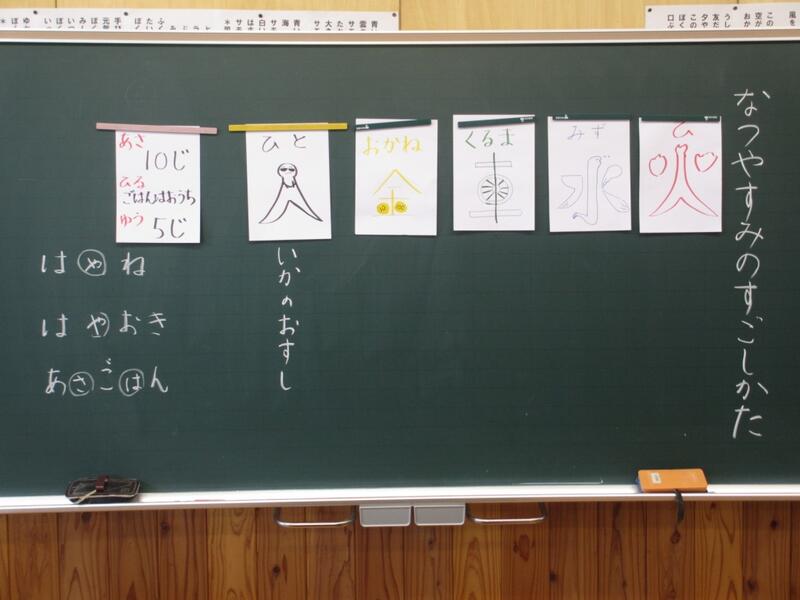 なつやすみのすごしかた
ひ
火
みず
水
くるま
車
おかね
金
ひと
人
いかのおすし
あさ
10じ
ひる
ごはんはおうち
ゆう
5じ
はやね
はやおき
あさごはん